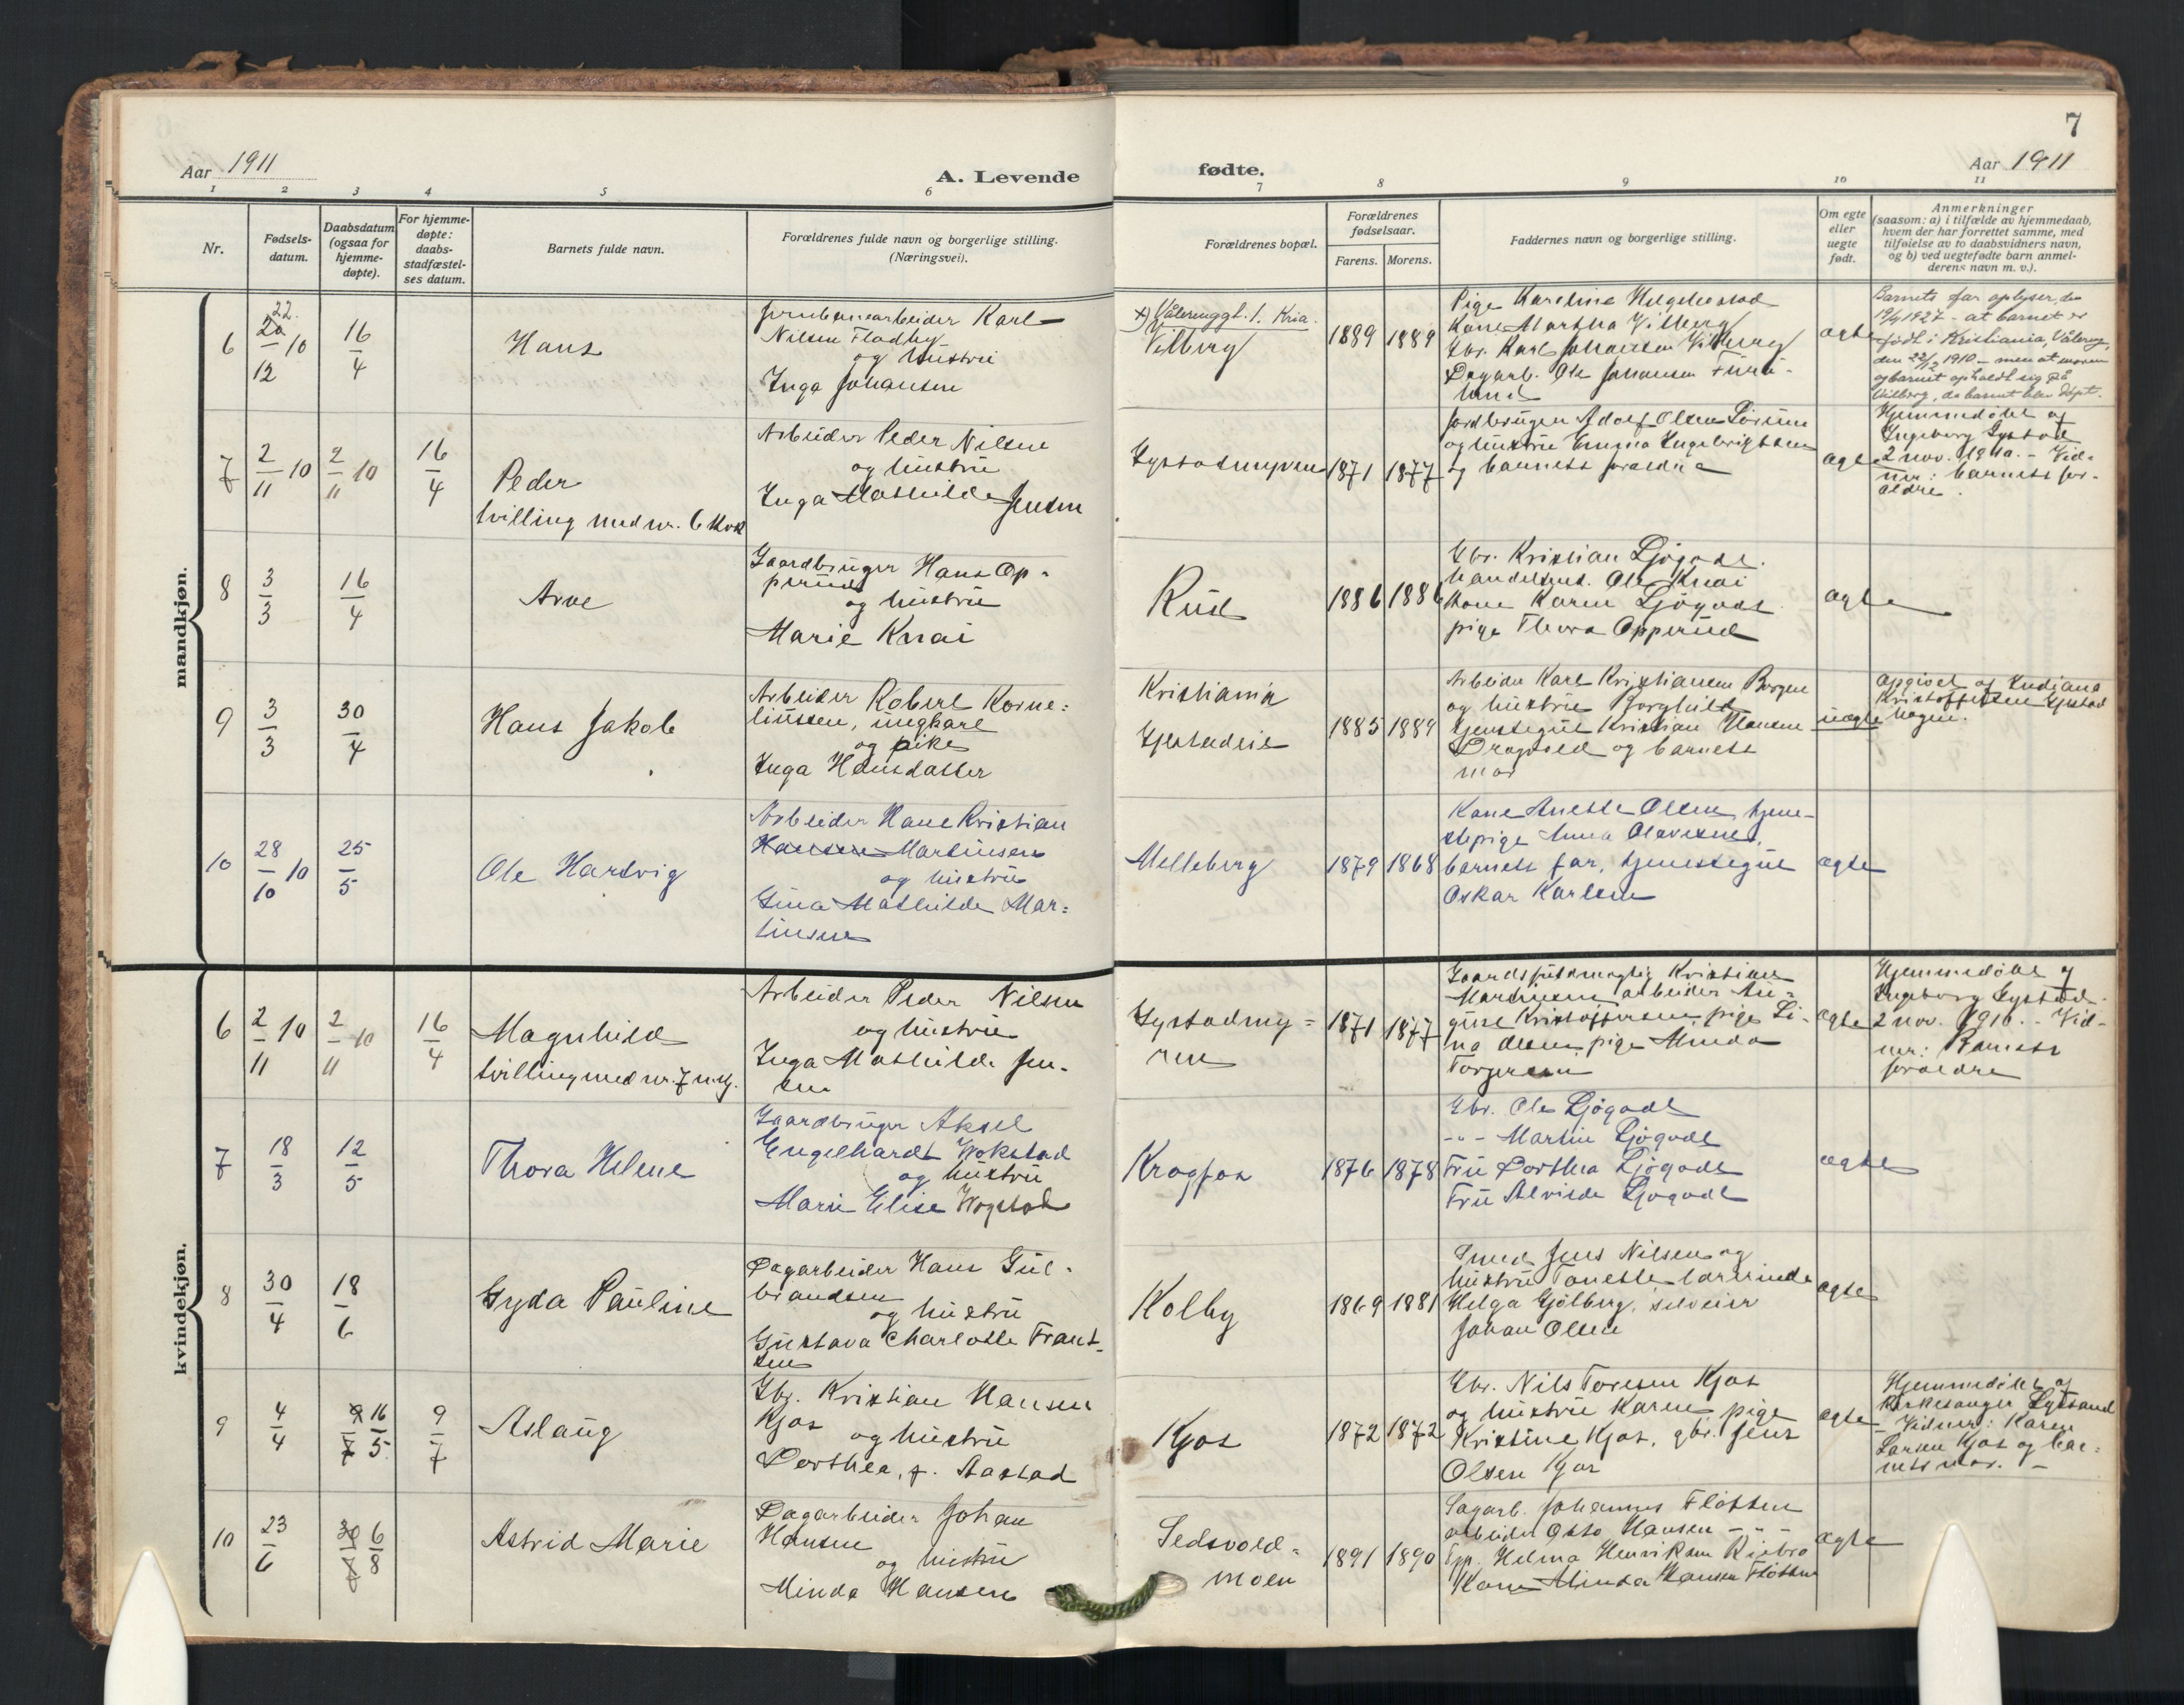 7
Aar 1911
A. Levende
fødte.
Aar 1911
1 2 3 4 5 6 7 8 9 10 11
Nr.
Fødsels-
datum.
Daabsdatum
(ogsaa for
hjemme-
døpte).
For hjemme-
døpte:
daabs-
stadfæstel-
ses datum.
Barnets fulde navn.
Forældrenes fulde navn og borgerlige stilling.
(Næringsvei).
Forældrenes bopæl.
Forældrenes
fødselsaar.
Farens. Morens.
Faddernes navn og borgerlige stilling.
Om egte
eller
uegte
født.
Anmerkninger
(saasom: a) i tilfælde av hjemmedaab,
hvem der har forrettet samme, med
tilføielse av to daabsvidners navn,
og b) ved uegtefødte barn anmel-
derens navn m. v.).
mandkjøn.
6
22.
20/12 10
16/4
Hans
Jernbanearbeider Karl
Nilsen Fladby
og hustru
Inga Johansen
x) Vålerenggt. 1. Kria.
Vilberg
1889 1889
Pige Karoline Helgebostad
Kone Martha Vilberg
Gbr. Karl Johansen Vilberg
Dagarb. Ole Johansen Furu-
lund
ægte
Barnets far oplyser, den
19/4 1927 - at barnet er
født i Kristiania, Vålereng,
den 22/12 1910 - men at moren
og barnet opholdt sig på
Vilberg, da barnet blev døpt.
7
2/11 10
2/11 10
16/4
Peder
tvilling med nr. 6 kvk
Arbeider Peder Nilsen
og hustru
Inga Mathilde Jensen
Gystadmyren
1871 1877
Jordbruger Adolf Olsen
og hustru Emma Ingebrigtsen
og barnets forældre
ægte
Hjemmedøbt af
Ingeborg Gystad
2 nov. 1910. - Vid-
ner: barnets for-
ældre.
8
3/3
16/4
Arve
Gaardbruger Hans Op-
perud
og hustru
Marie Knai
Rud
1886 1886
Gbr. Kristian Ljøgodt.
handelsmd. Ole Knai
kone Karen Ljøgodt
pige Thora Opperud
ægte
9
3/3
30/4
Hans Jakob
Arbeider Robert Korne=
liussen, ungkarl
og pike
Inga Hansdatter
Kristiania
1885 1889
Arbeider Karl Kristiansen Borgen
og hustru Borghild
tjenestegut Kristian Hansen
Dragvold og barnets
mor
uægte
opgivet af
Kristoffersen Gystad
hagen.
10
28/10 10
25/5
Ole Hartvig
Arbeider Hans Kristian
Hansen Martinsen
og hustru
Gina Mathilde Mar=
tinsen
Melleberg
1879 1868
Kone Anette Olsen, tjene-
stepige Anna Olavesen,
barnets far, tjenestegut
Oskar Karlsen
ægte
kvindekjøn.
6
2/11 10
2/11 10
16/4
Magnhild
tvilling med nr. 7 m.kj.
Arbeider Peder Nilsen
og hustru
Inga Mathilde Jen-
sen
Gystadmy=
ren
1871 1877
Gaardsfuldmægtig Kristian
Martinsen, arbeider Au-
gust Kristoffersen, pige Li-
na Olsen, pige Minda
Torgersen
ægte
Hjemmedøbt af
Ingeborg Gystad
2 nov. 1910. - Vid-
ner: Barnets
forældre
7
18/3
12/5
Thora Helene
Gaardbruger Aksel
Engelhardt Wokstad
og hustru
Marie Elise Wogstad
Krogfos
1876 1878
Gbr. Ole Ljøgodt
-"- Martin Ljøgodt
Fru Dorthea Ljøgodt
Fru Alvilde Ljøgodt
ægte
8
30/4
18/6
Gyda Pauline
Dagarbeider Hans Gul-
brandsen
og hustru
Gustava Charlotte Frant-
sen
Kolby
1869 1881
Smed Jens Nilsen og
hustru Tonette, lærerinde
Helga Gjølberg, selveier
Johan Olsen
ægte
9
4/4
9/7 16/5
9/7
Aslaug
Gbr. Kristian Hansen
Kjos
og hustru
Dorthea, f. Aastad
Kjos
1872 1872
Gbr. Nils Toresen Kjos
og hustru Karen, pige
Kristine Kjos, gbr. Jens
Olsen Kjos
ægte
Hjemmedøbt af
Kirkesanger Lysand
- Vidner: Karen
Larsen Kjos og bar-
nets mor. -
10
23/6
30/7 6/8
Astrid Marie
Dagarbeider Johan
Hansen
og hustru
Minda Hansen
Ledsvold-
moen
1891 1890
Sagarb. Johannes Fløtten
arbeider Otto Hansen - " -
Tpp. Helma Henriksen
Kone Minda Hansen Fløtten
ægte